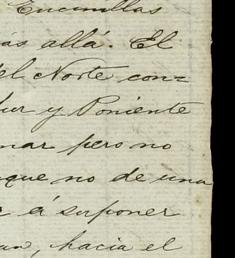 Encinillas
ás allá. El
el Norte con=
ur y Poniente
nar pero no
que no de una
á suponer
hacia el